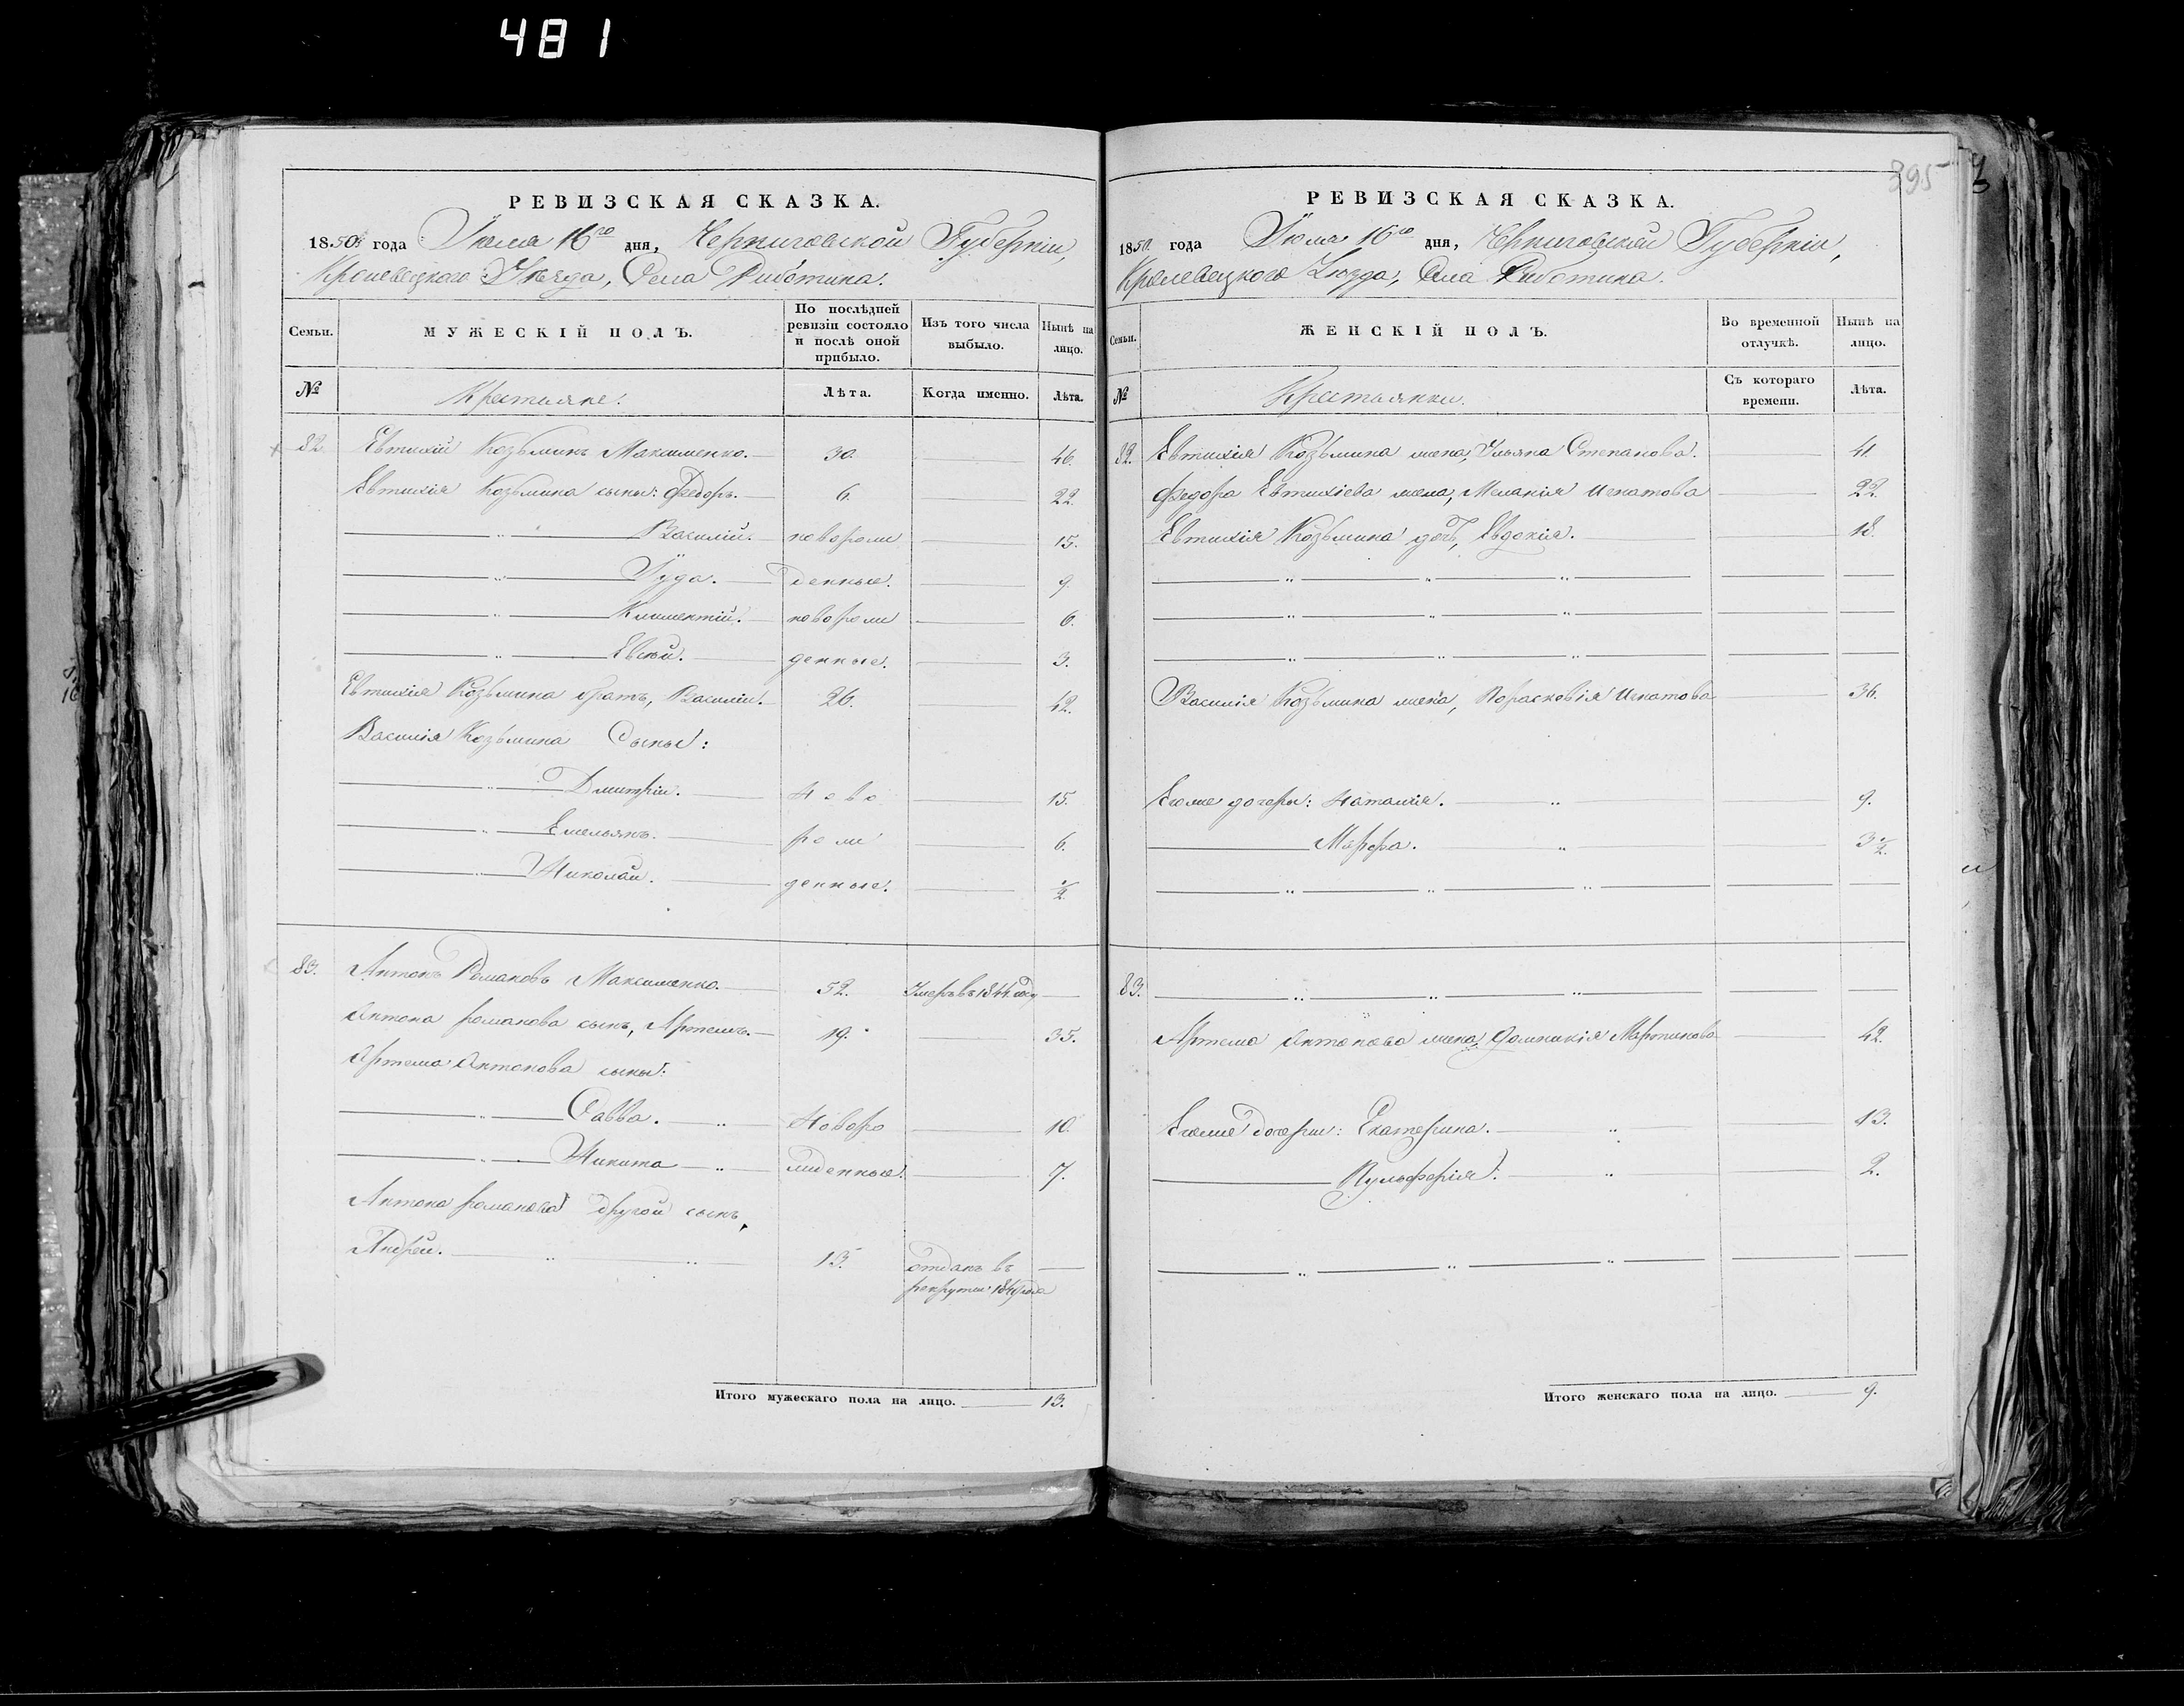 481
395
РЕВИЗСКАЯ СКАЗКА.
1850 года Іюля 16го дня, Черниговской Губерніи,
Кролевецкого Уѣзда, Села Риботина.
Семьи.
МУЖЕСКІЙ ПОЛЪ.
По послѣдней ревизіи состояло и послѣ оной прибыло.
Изъ того числа выбыло.
Нынѣ на лицо.
№
Крестьяне.
Лѣта.
Когда именно.
Лѣта.
82. Евтихій Козьминъ Максименко. 30. 46.
Евтихія Козьмина сыны: Федоръ. 6. 22.
Василій. новорож 15.
Іуда. денные. 9.
Климентій. новорож 6.
Евсѣй. денные. 3.
Евтихія Козьмина братъ, Василій. 26. 42.
Василія Козьмина Сыны:
Дмитрій. Ново 15.
Емельянъ. рож 6.
Николай. денные. ½.
83. Антонъ Романовъ Максименко. 52. Умеръ въ 1844. году
Антона романова сынъ, Артемъ. 19. 35.
Артема Антонова сыны:
Савва. Новоро 10.
Никита жденные. 7.
Антона романова другой сынъ,
Андрей. 13. отданъ въ
рекруты года
Итого мужескаго пола на лицо. 13.
РЕВИЗСКАЯ СКАЗКА.
1850. года Іюля 16го дня, Черниговской Губерніи,
Кролевецкого Уѣзда, Села Риботина.
Семьи.
ЖЕНСКІЙ ПОЛЪ.
Во временной отлучкѣ.
Нынѣ на лицо.
№
Крестьянки.
Съ котораго времени.
Лѣта.
82. Евтихія Козьмина жена, Ульяна Степанова. 41.
Федора Евтихіева жена, Меланія Игнатова 22.
Евтихія Козьмина дочь, Евдокія. 18.
Василія Козьмина жена, Порасковія Игнатова 36.
Егоже дочеры: Наталія. 9.
Марфа. 3½.
83.
Артема Антонова жена, Домникія Мартинова 42.
Егоже дочери: Екатерина. 13.
Пульферія. 2.
Итого женскаго пола на лицо. 9.